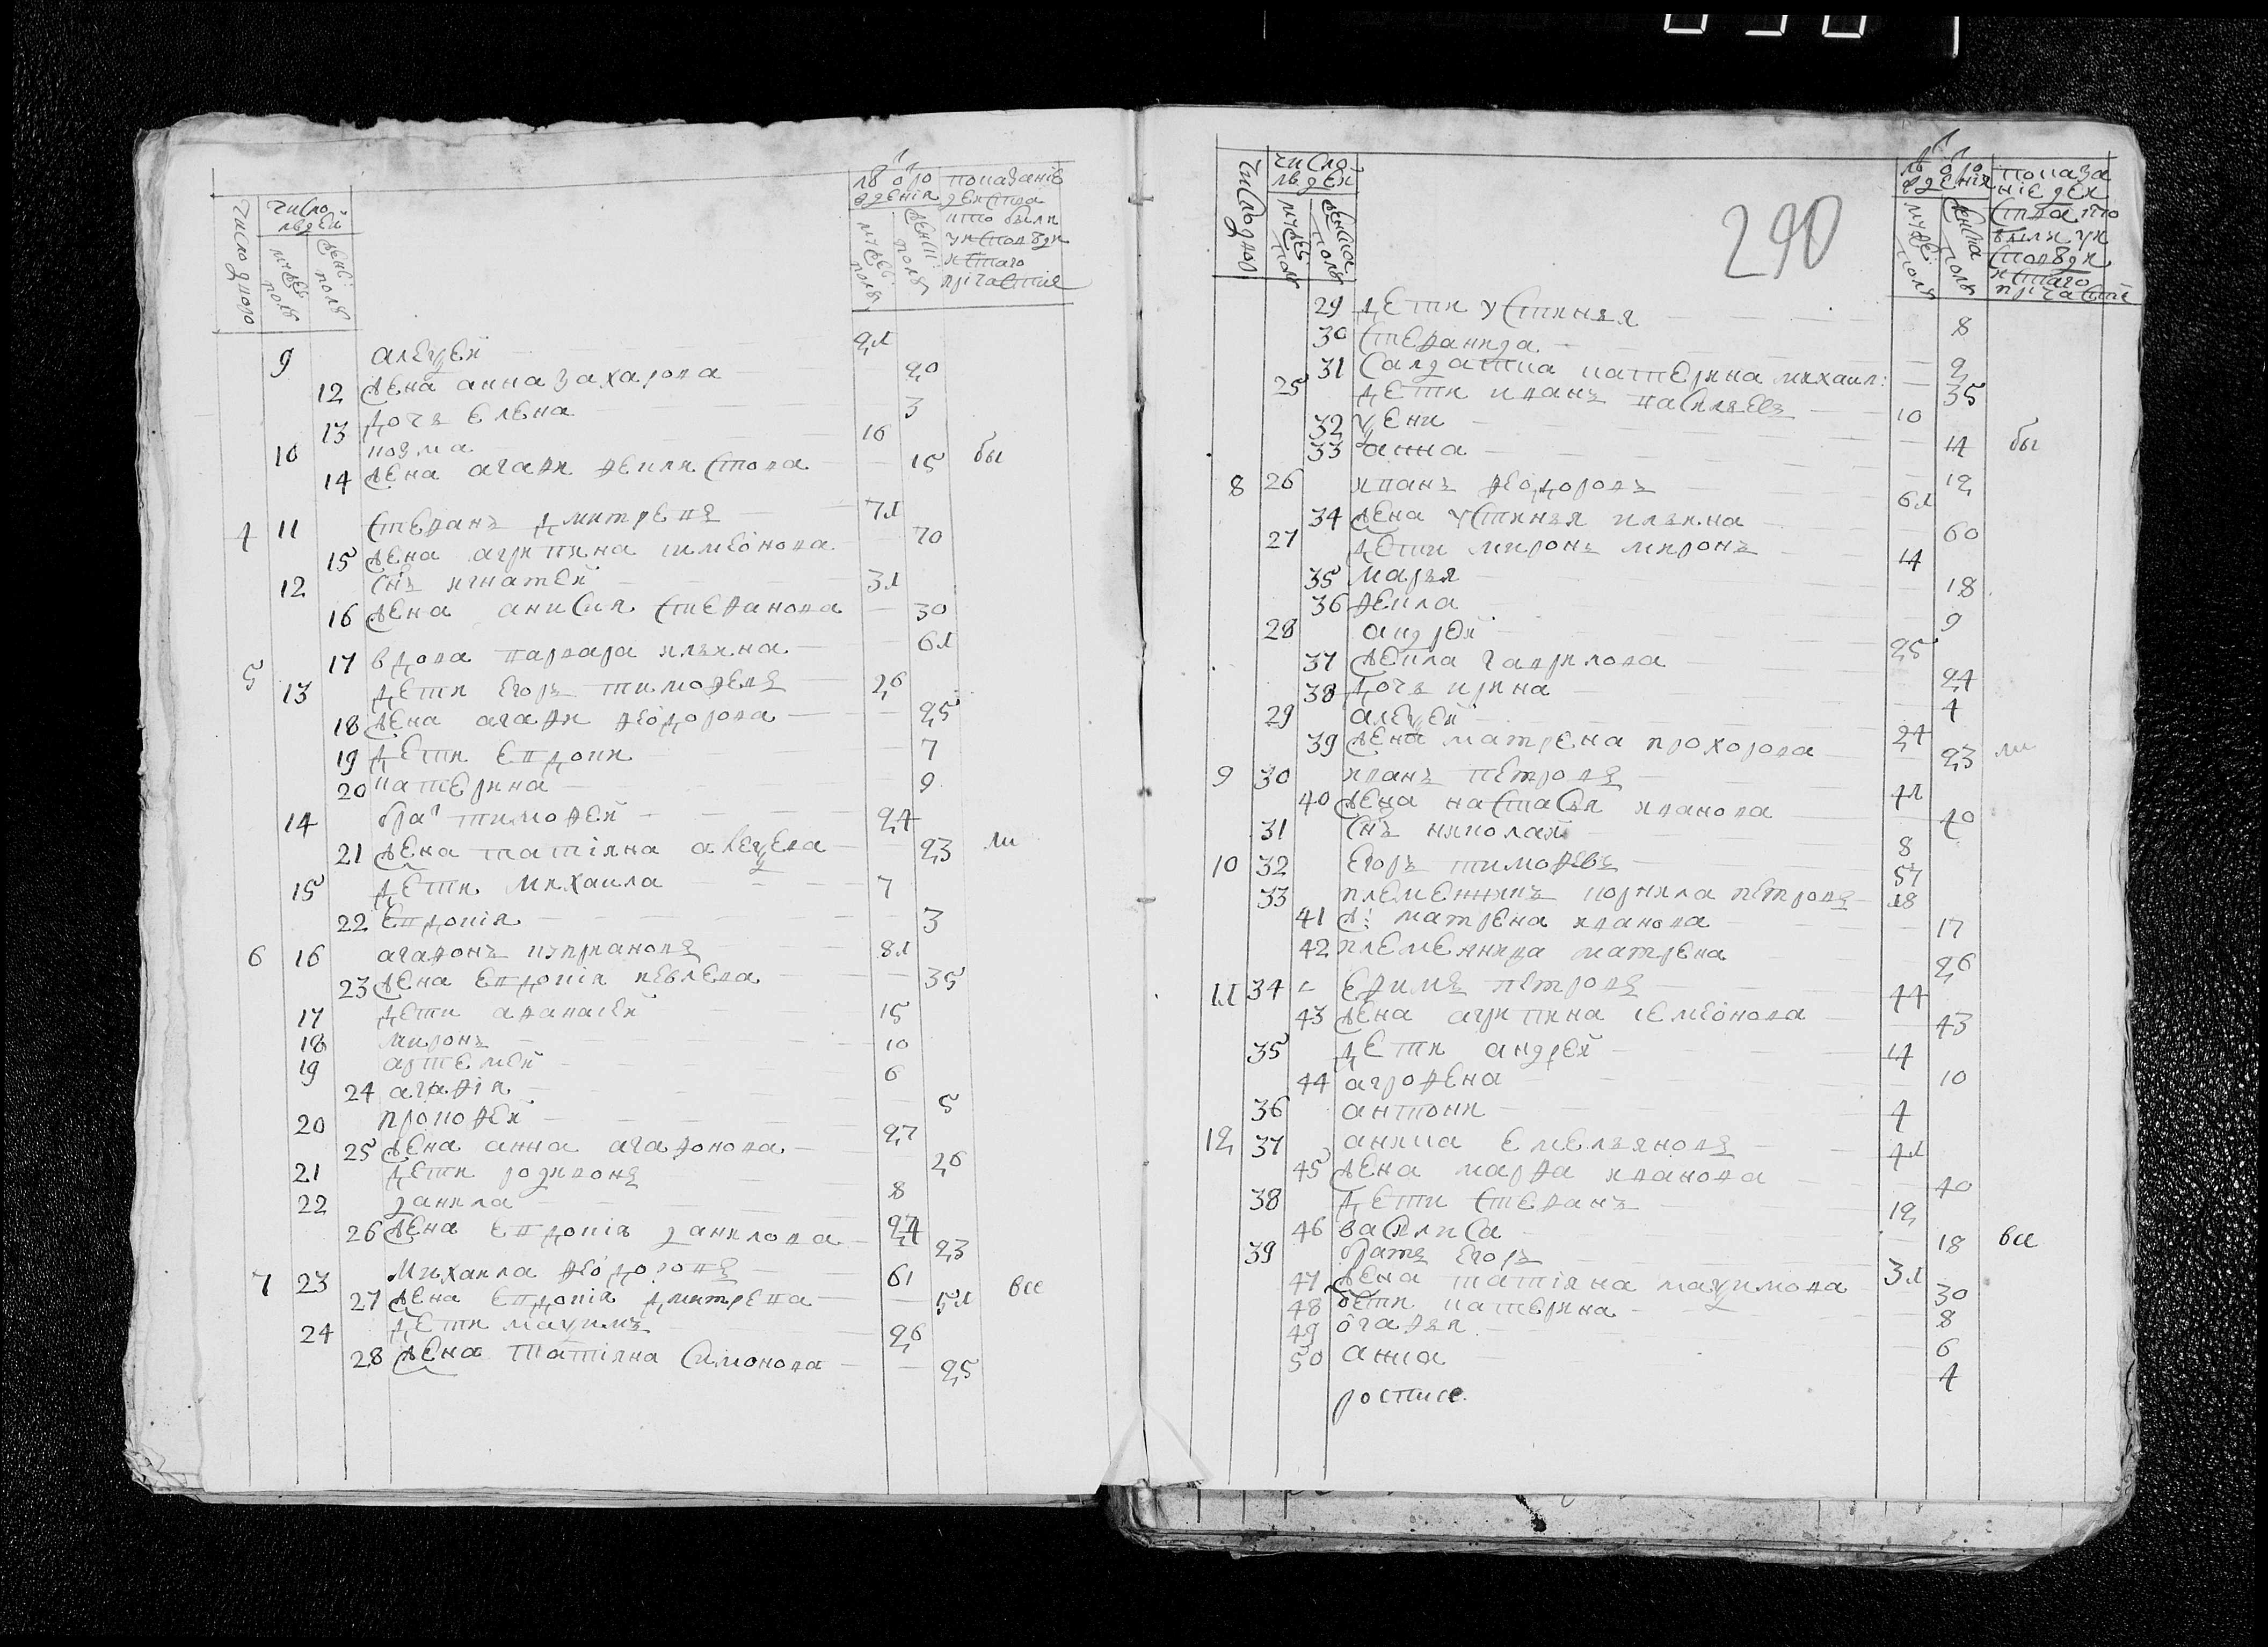 число дворо
число людей
мужеска полу
женска полу
лѣта от рождения
мужеска полу
женска полу
показание действа кто были у исповеди и святаго причастия
9 алеѯей 21
12 жена анна захарова 20
13 дочь елена 3
10 козма 16
14 жена агафи феиликстова 15
4 11 стефанъ дмитревъ 71
15 жена агрипина симеонова 70
12 снъ игнатей 31
16 жена анисия стефанова 30
5 17 вдова варвара ильина 61
13 дети егоръ тимофевъ 26
18 жена агафи феодорова 25
19 дети евдоки 7
20 катерина 9
14 бра тимофей 24
21 жена татияна алеѯева 23
15 дети михаила 7
22 евдокия 3
6 16 агафонъ куприяновъ 81
23 жена евдокия иевлева 35
17 дети афанасей 15
18 миронъ 10
19 артемей 6
24 агафия 5
20 прокофей 27
25 жена анна агафонова 26
21 дети родивонъ
22 данила 8
26 жена евдокия данилова 24 23
7 23 михаила феодоровъ 61
27 жена евдокия дмитрева 51
24 дети маѯимъ 26
28 жена татияна симонова 25
бы
ли
все
число дворо
число людей
мужеска полу
женска полу
лѣта от рождения
мужеска полу
женска полу
показание действа кто были у исповеди и святаго причастие
290
29 дети устинья 8
30 стефанида 2
31 салдатка катерина михаил: 35
25 дети иванъ васильевъ 10
32 ѯени 14
33 анна 12
8 26 иванъ феодоровъ 61
34 жена устинья ильина 60
27 дети миронъ миронъ 14
35 марья 18
36 фекла 9
28 андрей 25
37 жена фекла гаврилова 24
38 дочь ирина 4
29 алеѯей 24
39 жена матрена прохорова 23
9 30 иванъ петровъ 41
40 жена настасья иванова 40
31 снъ николай 8
10 32 егоръ тимофевъ 57
33 племенникъ корнила петровъ 18
41 ж: матрена иванова 17
42 племенница матрена 26
11 34 ефимъ петровъ 44
43 жена агрипина семеонова 43
35 дети андрей 14
44 агрофена 10
36 антони 4
12 37 аника емельяновъ 41
45 жена марфа иванова 40
38 дети стефанъ 12
46 василиса 18
39 братъ егоръ 31
47 жена татияна маѯимова 30
48 дети катерина 8
49 огафья 6
50 анна 4
бы
ли
все
росписе